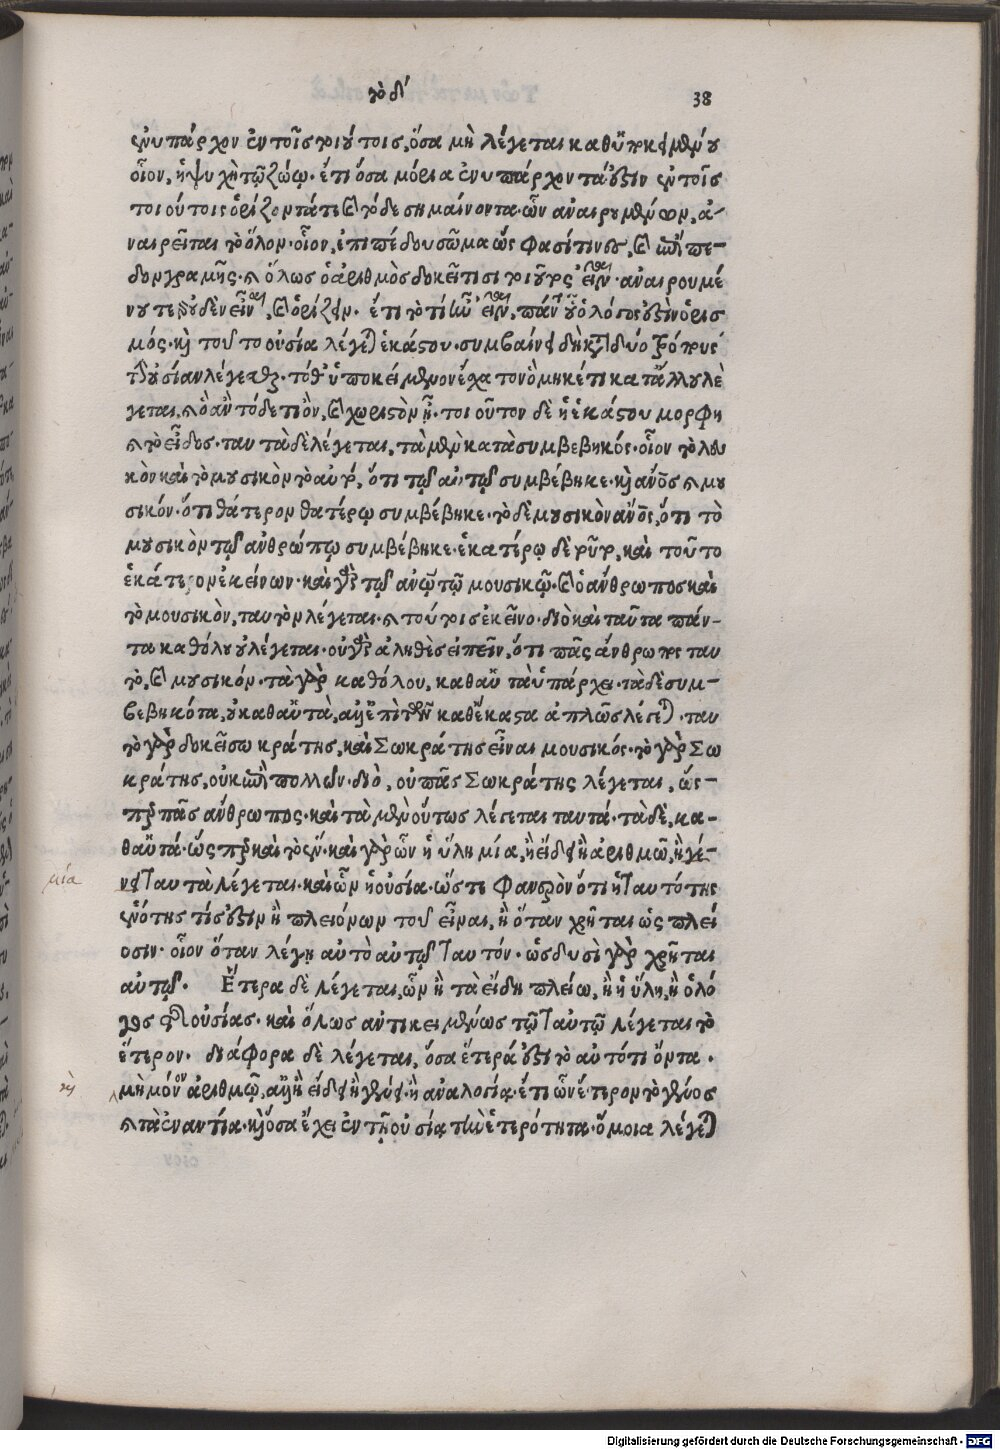 τὸ δ´ 38
ἐνυπάρχον ἐν τοῖς τοιούτοις, ὅσα μὴ λέγεται καθ' ὑποκειμένου
οἷον, ἡ ψυχὴ τῷ ζώῳ. ἔτι ὅσα μόρια ἐνυπάρχοντά ἐστιν ἐν τοῖς
τοιούτοις ὁρίζοντά τε καὶ τόδε σημαίνοντα. ὧν ἀναιρουμένων, ἀ-
ναιρεῖται τὸ ὅλον. οἷον, ἐπιπέδου σῶμα ὥς φασί τινες, καὶ ἐπίπε-
δον γραμῆς. καὶ ὅλως ὁ ἀριθμὸς δοκεῖ τισι τοιοῦτος εἶναι. ἀναιρουμέ
νου τε οὐδὲν εἶναι, καὶ ὁρίζειν. ἔτι τὸ τί ἦν εἶναι, οὗ ὁ λόγος ἐστὶν ὁρισ
μός. καὶ τοῦτο οὐσία λέγεται ἑκάστου. συμβαίνει δὴ κατὰ δύο τρόπους
τὴν οὐσίαν λέγεσθαι. τό θ' ὑποκείμενον ἔσχατον ὃ μηκέτι κατ' ἄλλου λέ
γεται, καὶ ὃ ἂν τόδε τι ὂν, καὶ χωριστὸν ᾖ. τοιοῦτον δὲ ἡ ἑκάστου μορφὴ
καὶ τὸ εἶδος. ταυτὰ δὲ λέγεται, τὰ μὲν κατὰ συμβεβηκός. οἷον τὸ λευ
κὸν καὶ τὸ μουσικὸν τὸ αὐτό, ὅτι τῷ αὐτῷ συμβέβηκε. καὶ ἄνθρωπος καὶ μου
σικόν. ὅτι θάτερον θατέρῳ συμβέβηκε. τὸ δὲ μουσικὸν ἄνθρωπος, ὅτι τὸ
μουσικὸν τῷ ἀνθρώπῳ συμβέβηκε. ἑκατέρῳ δὲ τοῦτο, καὶ τοῦτο
ἑκάτερον ἐκείνων. καὶ γὰρ τῷ ἀνθρώπῳ τῷ μουσικῷ. καὶ ὁ ἄνθρωπος καὶ
τὸ μουσικὸν, ταυτὸν λέγεται. καὶ τούτοις ἐκεῖνο. διὸ καὶ ταῦτα πάν-
τα καθόλου οὐ λέγεται. οὐ γὰρ ἀληθὲς εἰπεῖν, ὅτι πᾶς ἄνθρωπος ταυ
τὸ, καὶ μουσικόν. τὰ γὰρ καθόλου, καθ' αὑτὰ ὑπάρχει. τὰ δὲ συμ-
βεβηκότα, οὐ καθ' αὑτὰ, ἀλλ' ἐπὶ τῶν καθ' ἕκαστα ἁπλῶς λέγεται. ταυ
τὸ γὰρ δοκεῖ σωκράτης, καὶ Σωκράτης εἶναι μουσικός. τὸ γὰρ Σω
κράτης, οὐκ ἐπὶ πολλῶν. διὸ, οὐ πᾶς Σωκράτης λέγεται, ὥς-
περ πᾶς ἄνθρωπος. καὶ τὰ μὲν οὕτως λέγεται ταυτά. τὰ δὲ, κα-
θ' αὑτά. ὥσπερ καὶ τὸ ἕν. καὶ γὰρ ὧν ἡ ὕλη μία, ἢ εἴδει ἢ ἀριθμῶ, ἢ γέ-
νει ταυτὰ λέγεται. καὶ ὧν ἡ οὐσία. ὥστε φανερὸν ὅτι ἡ ταυτότης
ἑνότης τίς ἐστιν ἢ πλειόνων τοῦ εἶναι, ἢ ὅταν χρῆται ὡς πλεί
οσιν. οἷον ὅταν λέγῃ αὐτὸ αὑτῷ ταυτόν. ὡς δυσὶ γὰρ χρῆται
αὐτῷ. Ἕτερα δὲ λέγεται, ὧν ἢ τὰ εἴδη πλείω, ἢ ἡ ὕλη, ἢ ὁ λό
γος τῆς οὐσίας. καὶ ὅλως ἀντικειμένως τῷ ταὐτῷ λέγεται τὸ
ἕτερον. διάφορα δὲ λέγεται, ὅσα ἕτερά ἐστι τὸ αὐτό τι ὄντα.
μὴ μόνον ἀριθμῷ, ἀλλ' ἢ εἴδει ἢ γένει. ἢ ἀναλογίᾳ. ἔτι ὧν ἕτερον τὸ γένος
καὶ τὰ ἐναντία. καὶ ὅσα ἔχει ἐν τῇ οὐσίᾳ τὴν ἑτερότητα. ὅμοια λέγεται
μία
Digitalisierung gefördert durch die Deutsche Forschungsgemeinschaft - DFG